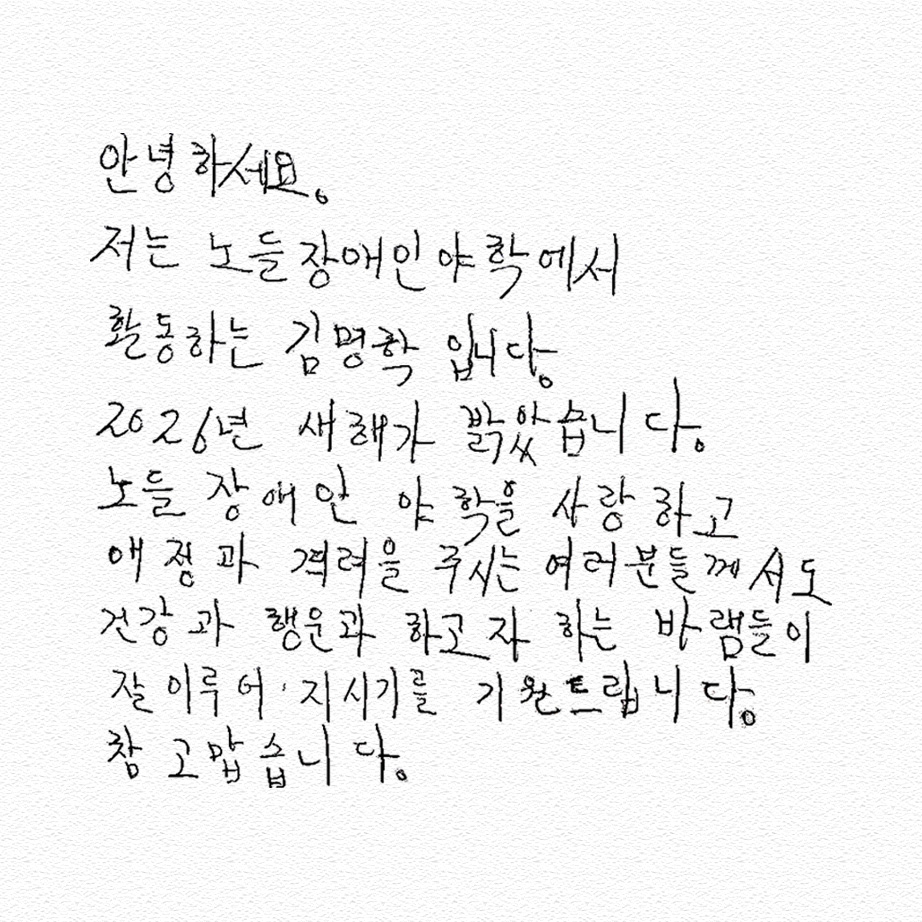 안녕하세요.
저는 노들장애인야학에서
활동하는 김명학 입니다.
2026년 새해가 밝았습니다.
노들 장애인 야학을 사랑하고
애정과 격려을 주시는 여러분들께서도
건강과 행운과 하고자 하는 바램들이
잘 이루어지시기를 기원드립니다.
참 고맙습니다.